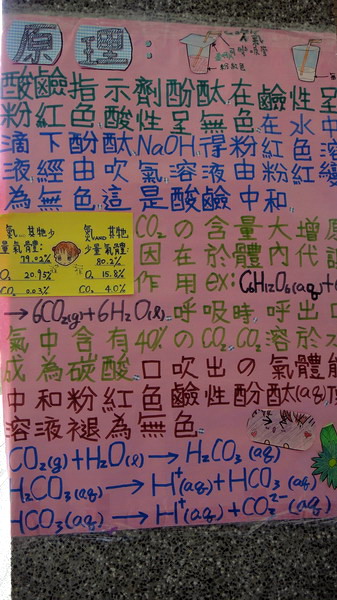 原理:
粉紅色
酸鹼指示劑酚酞在鹼性呈
粉紅色酸性呈無色在水中
滴下酚酞NaOH得粉紅色溶
液經由吹氣溶液由粉紅變
為無色這是酸鹼中和
氮 其牠少量氣體:
79.02%
O₂ 20.95%
CO₂ 0.03%
氮AND其牠少量氣體:
80.2%
O₂ 15.8%
CO₂ 4.0%
CO₂の含量大增原
因在於體內代謝
作用ex:C₆H₁₂O₆(aq)+6
→6CO₂(g)+6H₂O(l)呼吸時,呼出
氣中含有40%のCO₂,CO₂溶於水
成為碳酸口吹出の氣體能
中和粉紅色鹼性酚酞(aq)
溶液褪為無色
CO₂(g)+H₂O(l)→H₂CO₃(aq)
H₂CO₃(aq)→H⁺(aq)+HCO₃⁻(aq)
HCO₃(aq)→H⁺(aq)+CO₃²⁻(aq)